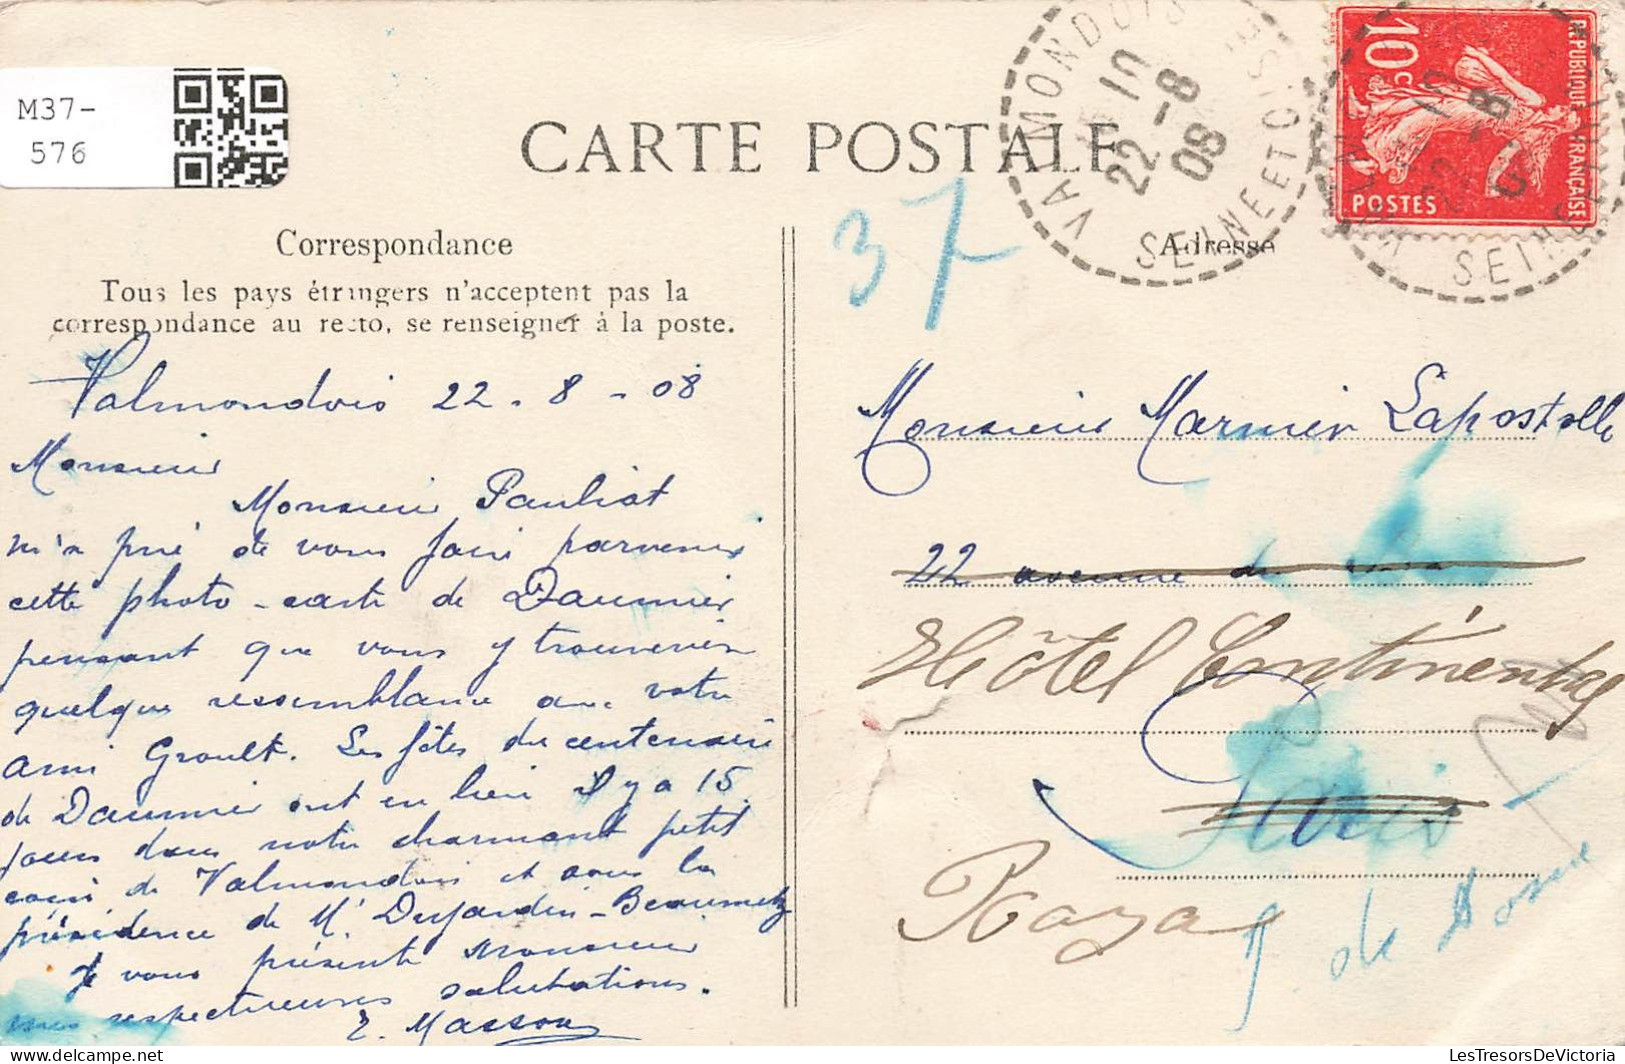 M37-
576
CARTE POSTALE
VALMONDOIS
10
22 - 8
08
SEINE ET OISE
10c
REPUBLIQUE FRANÇAISE
POSTES
37
Correspondance
Tous les pays étrangers n'acceptent pas la
correspondance au recto, se renseigner à la poste.
Valmondois 22 - 8 - 08
Monsieur
Monsieur Pauliat
m'a prié de vous faire parvenir
cette photo-carte de Daumier
pensant que vous y trouverier
quelque ressemblance avec votre
ami Groult. Les fêtes du centenaire
de Daumier ont eu lieu il y a 15
jours dans notre charmant petit
coin de Valmondois et sous la
présidence de Mr Dujardin-Beaumetz
Je vous présente Monsieur
mes respectueuses salutations.
E. Masson
Adresse
Monsieur Marnier Lapostolle
22 avenue de
Hôtel Continental
Paris
Royat
P de Dome
LesTresorsDeVictoria.com